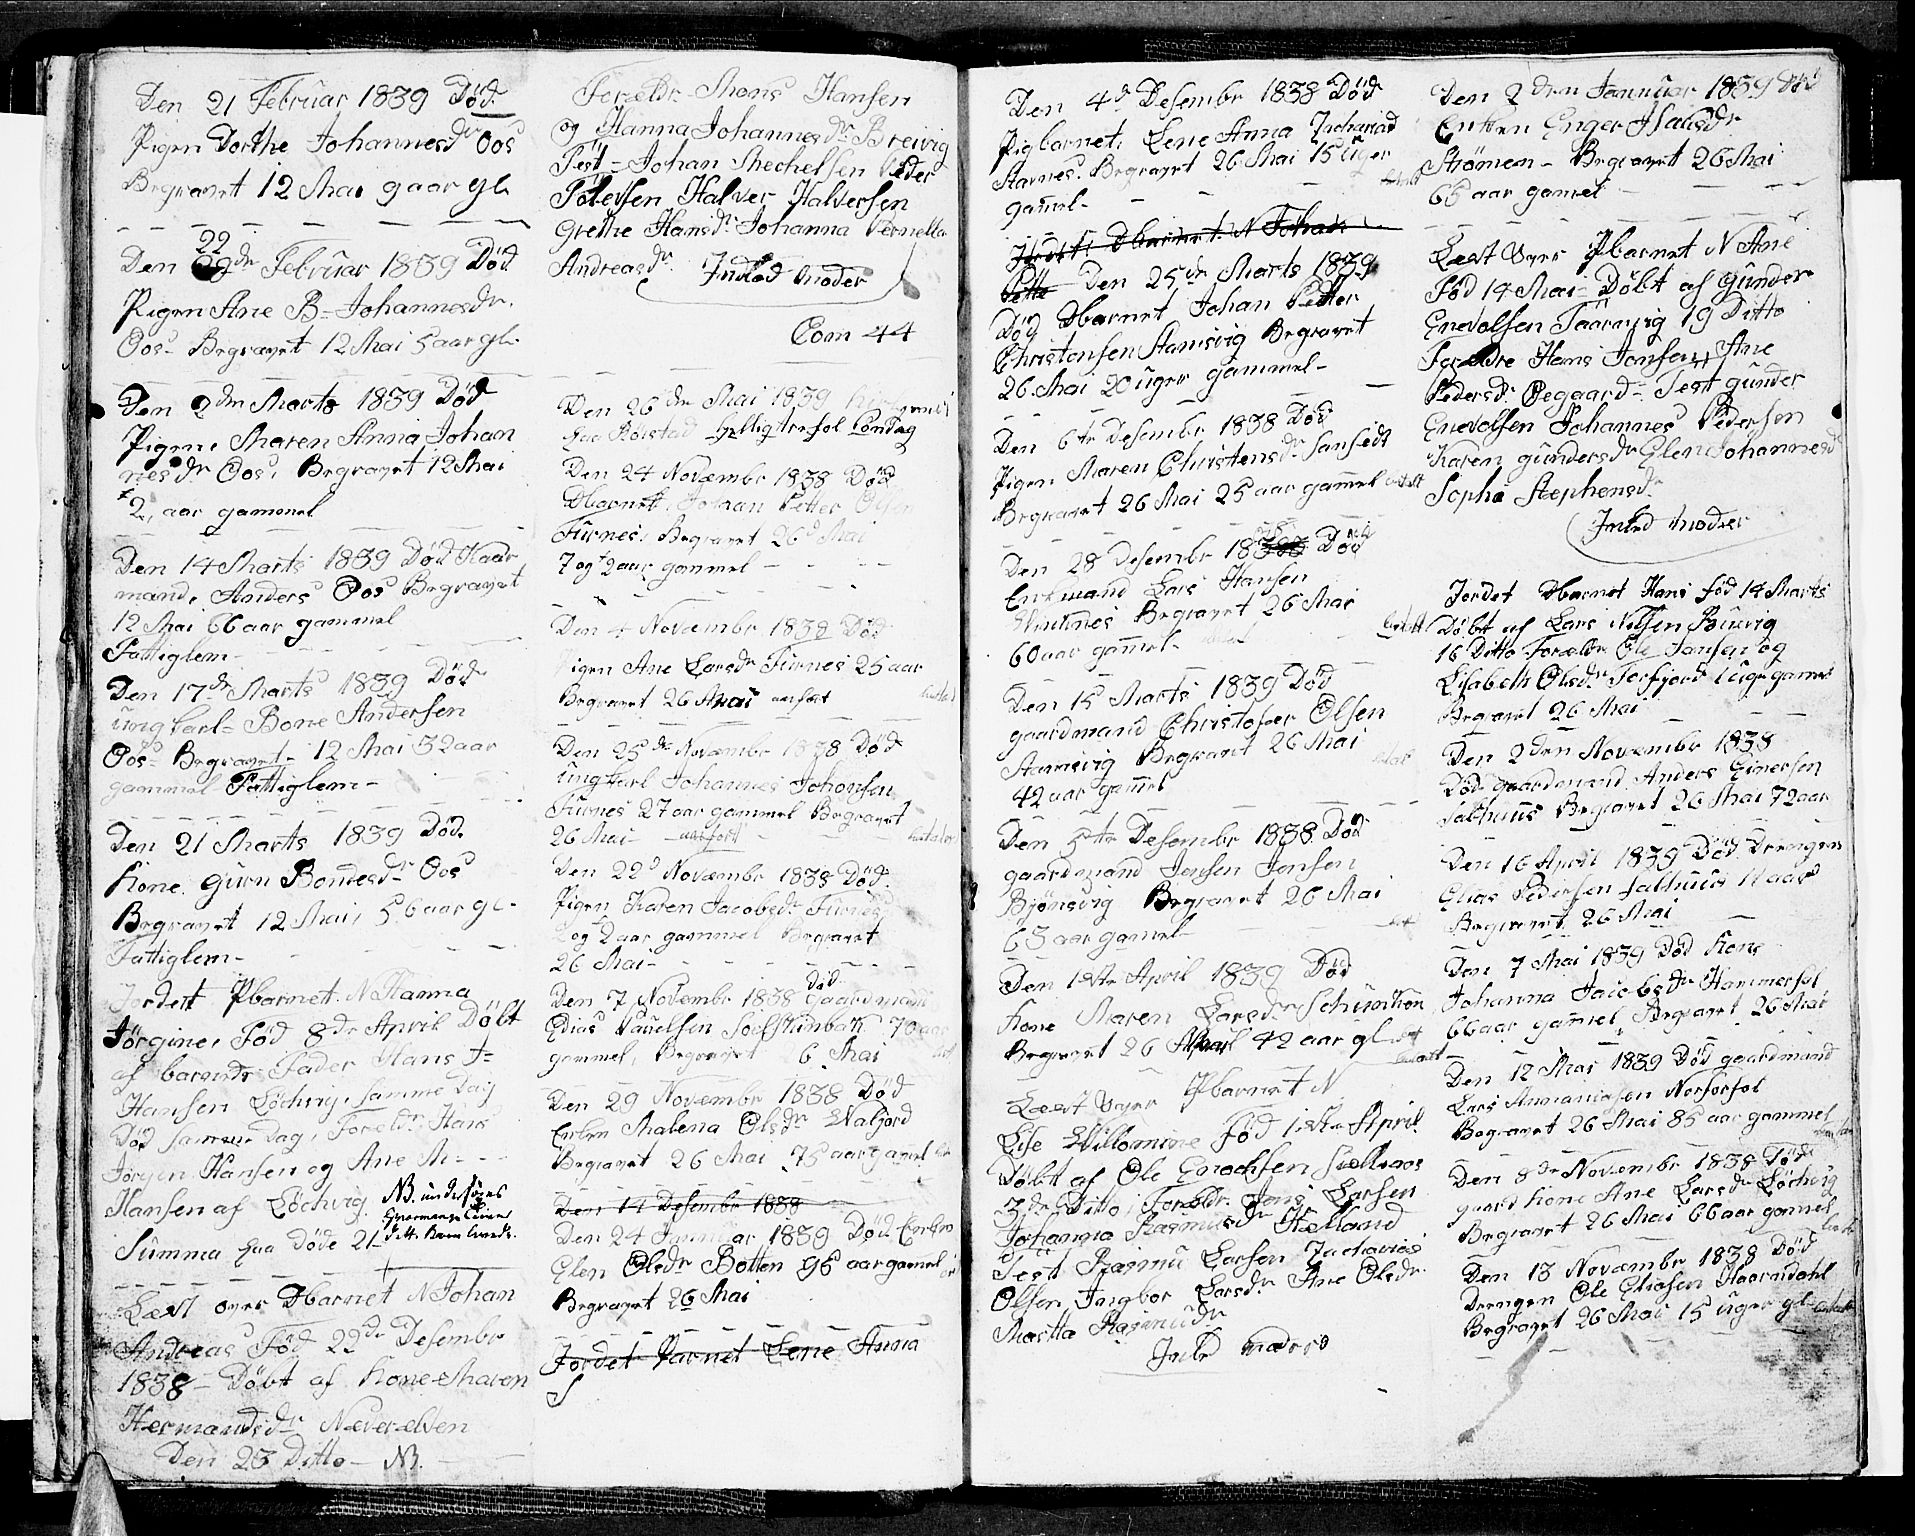 Den 21 Februar 1839 Død
Pigen Dorthe Johannesdr Oos
Begravet 12 Mai gaar gl.
Den 22 dr Februar 1839 Død
Pigen Ane B= Johannesdr.
Oos= Begravet 12 Mai 5 aar gl.
Den 2den Marts 1839 Død
Pigen, Maren Anna Johan
nesdr Oos, Begravet 12 Mai
½ aar gammel
Den 14 Marts 1839 Død Kaar
mand, Anders Oos Begravet
12 Mai 66 aar gammel
Fattiglem
Den 17de Marts 1839 Død
ungkarl= Bone Andersen
Oos= Begravet= 12 Mai 32 aar
gammel Fattiglem=
Den 21 Marts 1839 Død
Kone Guru Bonnesdr Oos
Begravet 12 Mai, 56 aar gl=
Fattiglem=
Jordet Pbarnet N Hanna
Jørgine, Fød 8de April Døbt
af barnets Fader Hans J=
Hansen Løchvig, samme Dag
Død samme Dag, Foreldr Hans
Jørgen Hansen og Ane M=
Hansen af Løchvig.
NB. underføres
Summa paa Døde 21
Læst over Dbarnet N Johan
Andreas Fød 22de Desembr
1838= Døbt af Kone Maren
Hermandsdr Næverelven
Den 23 Ditto= NB.
Foreldr Mons Hansen
og Hanna Johannesdr Breivig
Test= Johan Mechelsen Peder
Tolefsen Halver Halversen
Grethe Hansdr Johanna Pernella
Andreasdr Indled Moder
Com 44
Den 26de Mai 1839
paa Rølstad Helligtrefol Søndag
Den 24 Novembr 1838 Død
Dbarnet, Johan Petter
Furnes, Begravet 26d Mai
7 og ½ aar gammel
Den 4 Novembr 1838 Død
Pigen Ane Larsdr Furnes 25 aar
Begravet 26 Mai anført
Den 25de Novembr 1838 Død
ungkarl Johannes Johansen
Furnes 27 aar gammel Begravet
26 Mai= anført
Den 22d Novembr 1838 Død.
Pigen Karen Jacobsdr Furnes
2 og ½ aar gammel Begravet
26 Mai=
Den 7 Novembr 1838 Død Gaardmand
Elias Paulsen 70 aar
gammel, Begravet 26 Mai
Den 29 Novembr 1838 Død
Enken Malena Olsdr Valfjord
Begravet 26 Mai 75 aar gamel
Den 14 Desembr 1838
Den 24 Januar 1839 Død Enken
Elen Olsdr Botten 96 aar gamel
Begravet 26 Mai
Jordet Parnet Lene Anna
S
Den 4d Desembr 1838 Død
Pigbarnet, Lene Anna Zachariad
Stavnes, Begravet 26 Mai 15 uger
gamel
Jordet Dbarnet N Johan
Pette Den 25de Marts 1839
Død Dbarnet Johan Petter
Christensen Stamsvig Begravet
26 Mai 20 uger gammel=
Den 6te Desembr 1838 Død
Pigen Maren Christensdr
Begravet 26 Mai 25 aar gamel
Den 28 Desembr 1838 Død
Enkmand Lars Hansen
Begravet 26 Mai
60 aar gamel
Den 15 Marts 1839 Død
gaardmand Christofer Olsen
Stamsvig Begravet 26 Mai
42 aar gamel
Den 5te Desembr 1838 Død
gaardmand Jensen Jensen
Bjønsvig Begravet 26 Mai
63 aar gamel
Den 1ste April 1839 Død
Kone Maren Larsdr
Begravet 26 Mai 42 aar gl
Læst over Pbarnet N
Lise Willomine Fød 1ste April
Døbt af Ole Enochsen
3de Ditto, Foreldr Jens Larsen
Johanna Rasmusdr
Test Rasmu Larsen Zacharias
Olsen Ingbor Larsdr Ane Olsdr
Martta Rasmusdr
Inled moder
Den 2den Januar 1839 Død
Enken Enger Isaksdr
Strømen= Begravet 26 Mai
65 aar gamel
Læst over Pbarnet N Ane
Fød 14 Mai= Døbt af Gunder
Enevolsen Taarnvig 19 Ditto
Foreldre Hans Jonsen, Ane
Pedersdr Øegaard= Test gunder
Enevolsen Johannes Pedersen
Karen gundersdr Elen Johannesd
Sopha Stephensdr
Inled moder
Jordet Dbarnet Hans fød 14 Marts
Døbt af Lars Nilsen
16 Ditto Foreldr Ole Jansen og
Lisabeth Olsdr Torfjord 1 uge gamel
Begravet 26 Mai
Den 2den Novembr 1838
Død gaardmand Anders Einersen
Salthuus Begravet 26 Mai 72 aar
Den 16 April 1839 Død Drengen
Elias Pedersen Salthuus 11 aar
Begravet 26 Mai
Den 7 Mai 1839 Død Kone
Johanna Jacobsdr Hammerfol
66 aar gamel, Begravet 26 Mai
Den 12 Mai 1839 Død gaardmand
Lars Annaniasen Norforfol
Begravet 26 Mai 85 aar gammel
Den 8de Novembr 1838 Død
gaard Kone Ane Larsdr Løchvig
Begravet 26 Mai 66 aar gammel
Den 13 Novembr 1838 Død
Drengen Ole Eliasen Haarndahl
Begravet 26 Mai 15 uger gl=